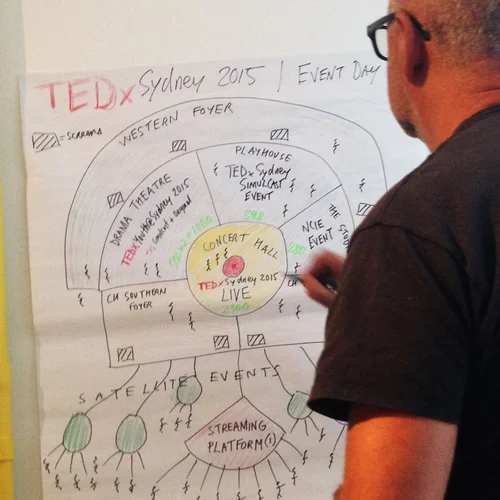 TEDx Sydney 2015 | EVENT DAY
= SCREENS
WESTERN FOYER
PLAYHOUSE
TEDx Sydney
SIMULCAST
EVENT
DRAMA THEATRE
TEDx Youth@Sydney 2015
NCIE
EVENT
CONCERT HALL
TEDxSydney 2015
LIVE
CH SOUTHERN
FOYER
SATELLITE EVENTS
STREAMING
PLATFORM(S)